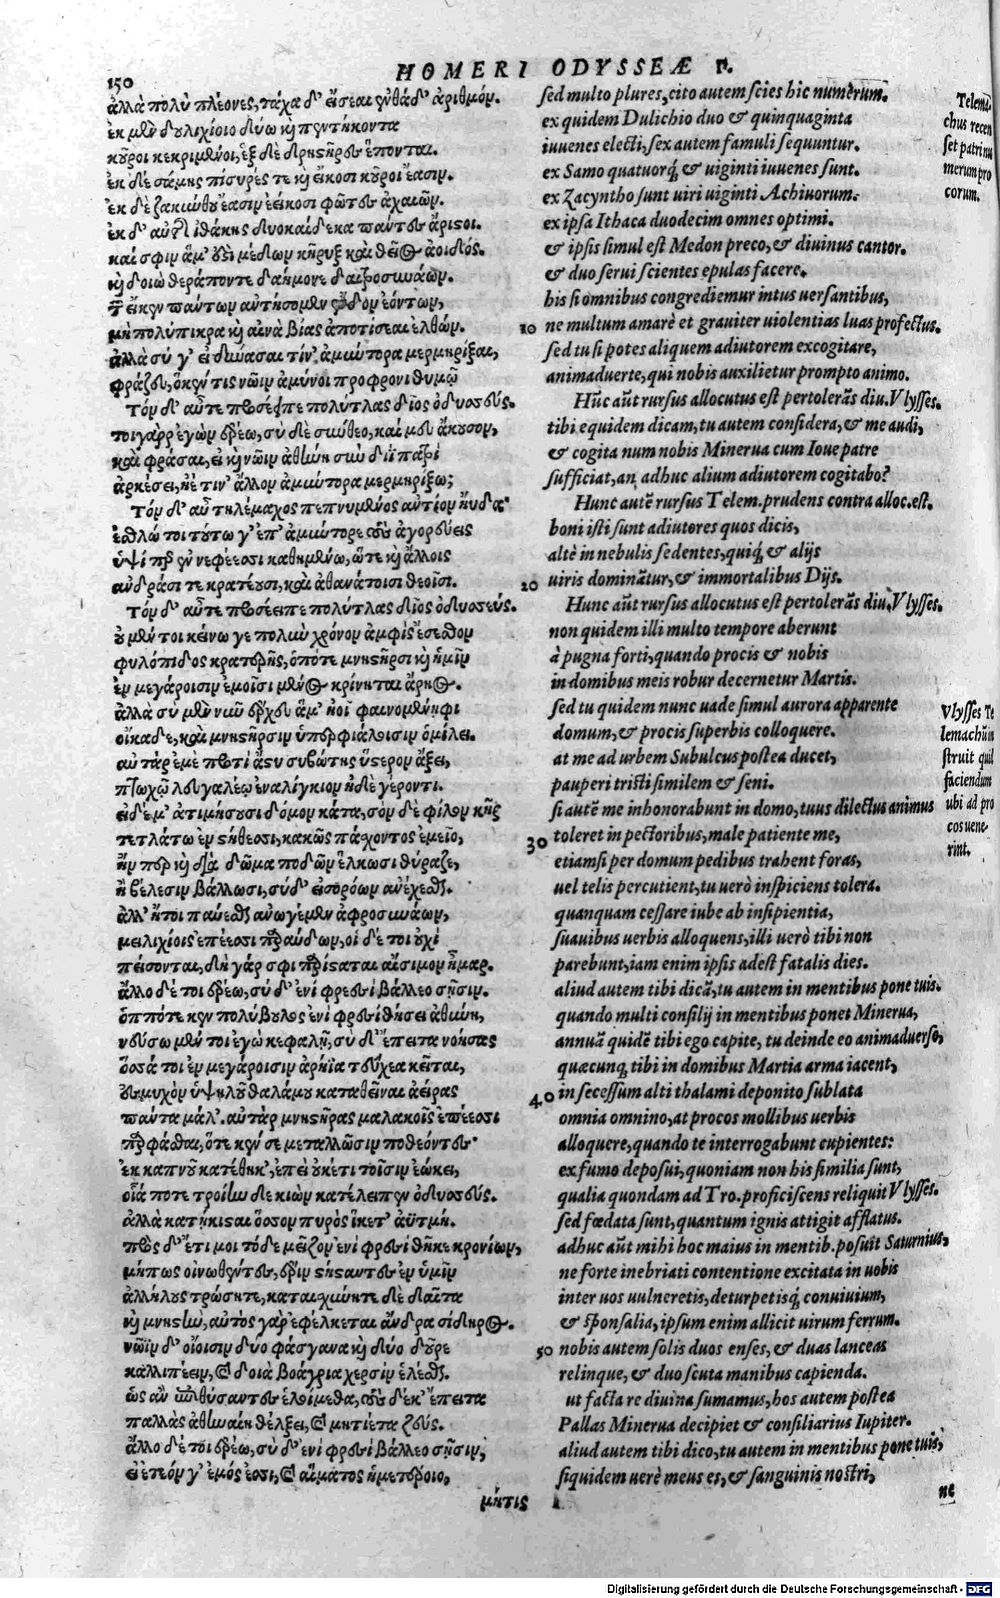 150
HOMERI ODYSSEÆ π.
ἀλλὰ πολὺ πλέονες, τάχα δ' εἴσεαι ἐνθάδ' ἀριθμόν.
ἐκ μὲν δουλιχίοιο δύω καὶ πεντήκοντα
κοῦροι κεκριμένοι, ἓξ δὲ δρηστῆρες ἕπονται.
ἐκ δὲ σάμης πίσυρές τε καὶ εἴκοσι κοῦροι ἔασιν.
ἐκ δὲ ζακύνθου ἔασιν ἐείκοσι φῶτες ἀχαιῶν.
ἐκ δ' αὐτῆς ἰθάκης δυοκαίδεκα πάντες ἄριστοι.
καί σφιν ἅμ' ἐστὶ μέδων κῆρυξ καὶ θεῖος ἀοιδός.
καὶ δοιὼ θεράποντε δαήμονε δαιτροσυνάων.
τῶν εἴκεν πάντων ἀντήσομεν ἔνδον ἐόντων,
μὴ πολύπικρα καὶ αἰνὰ βίας ἀποτίσεαι ἐλθών.
ἀλλὰ σύ γ' εἰ δύνασαι τίν' ἀμύντορα μερμηρίξαι,
φράζευ, ὅκεν τις νῶϊν ἀμύνοι προφρονι θυμῷ
Τὸν δ' αὖτε προσέειπε πολύτλας δῖος ὀδυσσεύς.
τοιγὰρ ἐγὼν ἐρέω, σὺ δὲ σύνθεο, καί μευ ἄκουσον,
καὶ φράσαι, εἰ καὶ νῶϊν ἀθήνη σὺν διῒ πατρὶ
ἀρκέσει, ἠέ τιν' ἄλλον ἀμύντορα μερμηρίξω;
Τὸν δ' αὖ τηλέμαχος πεπνυμένος ἀντίον ηὔδα·
ἐσθλώ τοι τούτω γ' ἐπ' ἀμύντορε τοὺς ἀγορεύεις
ὑψί περ ἐν νεφέεσσι καθημένω, ὥτε καὶ ἄλλοις
ἀνδράσι τε κρατέουσι, καὶ ἀθανάτοισι θεοῖσι.
Τὸν δ' αὖτε προσέειπε πολύτλας δῖος ὀδυσσεύς.
οὐ μέν τοι κείνω γε πολὺν χρόνον ἀμφὶς ἔσεσθον
φυλόπιδος κρατερῆς, ὁπότε μνηστῆρσι καὶ ἡμῖν
ἐν μεγάροισιν ἐμοῖσι μένος κρίνηται ἄρηος.
ἀλλὰ σὺ μὲν νῦν ἔρχευ ἅμ' ἠοῖ φαινομένηφι
οἴκαδε, καὶ μνηστῆρσιν ὑπερφιάλοισιν ὁμίλει.
αὐτὰρ ἐμὲ προτὶ ἄστυ συβώτης ὕστερον ἄξει,
πτωχῷ λευγαλέῳ ἐναλίγκιον ἠδὲ γέροντι.
εἰ δέ μ' ἀτιμήσουσι δόμον κάτα, σὸν δὲ φίλον κῆρ
τετλάτω ἐν στήθεσσι, κακῶς πάσχοντος ἐμεῖο,
ἤν περ καὶ διὰ δῶμα ποδῶν ἕλκωσι θύραζε,
ἢ βέλεσιν βάλλωσι, σὺ δ' εἰσορόων ἀνέχεσθαι.
ἀλλ' ἤτοι παύεσθαι ἀνωγέμεν ἀφροσυνάων,
μειλιχίοις ἐπέεσσι παραυδῶν, οἱ δέ τοι οὐχὶ
πείσονται, δὴ γάρ σφι παρίσταται αἴσιμον ἦμαρ.
ἄλλο δέ τοι ἐρέω, σὺ δ' ἐνὶ φρεσὶ βάλλεο σῇσιν.
ὁππότε κεν πολύβουλος ἐνὶ φρεσὶ θήσει ἀθήνη,
νεύσω μέν τοι ἐγὼ κεφαλῇ, σὺ δ' ἔπειτα νοήσας
ὅσσά τοι ἐν μεγάροισιν ἀρήϊα τεύχεα κεῖται,
ἐς μυχὸν ὑψηλοῦ θαλάμου καταθεῖναι ἀείρας
πάντα μάλ'. αὐτὰρ μνηστῆρας μαλακοῖς ἐπέεσσι
παρφάσθαι, ὅτε κέν σε μεταλλῶσιν ποθέοντες·
ἐκ καπνοῦ κατέθηκ', ἐπεὶ οὐκέτι τοῖσιν ἐῴκει,
οἷά ποτε τροίηνδε κιὼν κατέλειπεν ὀδυσσεύς.
ἀλλὰ κατῄκισται ὅσσον πυρὸς ἵκετ' ἀϋτμή.
πρὸς δ' ἔτι μοι τόδε μεῖζον ἐνὶ φρεσὶ θῆκε κρονίων,
μήπως οἰνωθέντες, ἔριν στήσαντες ἐν ὑμῖν
ἀλλήλους τρώσητε, καταισχύνητε δὲ δαῖτα
καὶ μνηστύν, αὐτὸς γὰρ ἐφέλκεται ἄνδρα σίδηρος.
νῶϊν δ' οἴοισιν δύο φάσγανα καὶ δύο δοῦρε
καλλιπέειν, καὶ δοιὰ βοάγρια χερσὶν ἑλέσθαι.
ὡς ἂν ἐπιθύσαντες ἑλοίμεθα, τοὺς δέ κ' ἔπειτα
παλλὰς ἀθηναίη θέλξει, καὶ μητίετα ζεύς.
ἄλλο δέ τοι ἐρέω, σὺ δ' ἐνὶ φρεσὶ βάλλεο σῇσιν,
εἰ ἐτεόν γ' ἐμός ἐσσι, καὶ αἵματος ἡμετέροιο,
μήτις
sed multo plures, cito autem scies hic numerum.
ex quidem Dulichio duo & quinquaginta
iuuenes electi, sex autem famuli sequuntur.
ex Samo quatuorq́; & uiginti iuuenes sunt.
ex Zacyntho sunt uiri uiginti Achiuorum.
ex ipsa Ithaca duodecim omnes optimi.
& ipsis simul est Medon preco, & diuinus cantor.
& duo serui scientes epulas facere.
his si omnibus congrediemur intus uersantibus,
10 ne multum amarè et grauiter uiolentias luas profectus.
sed tu si potes aliquem adiutorem excogitare,
animaduerte, qui nobis auxilietur prompto animo.
Hũc aũt rursus allocutus est pertolerãs diu. Vlysses.
tibi equidem dicam, tu autem considera, & me audi,
& cogita num nobis Minerua cum Ioue patre
sufficiat, an adhuc alium adiutorem cogitabo?
Hunc autẽ rursus Telem. prudens contra alloc. est.
boni isti sunt adiutores quos dicis,
altè in nebulis sedentes, quiq́; & alijs
20 uiris dominãtur, & immortalibus Dijs.
Hunc aũt rursus allocutus est pertolerãs diu, Vlysses.
non quidem illi multo tempore aberunt
à pugna forti, quando procis & nobis
in domibus meis robur decernetur Martis.
sed tu quidem nunc uade simul aurora apparente
domum, & procis superbis colloquere.
at me ad urbem Subulcus postea ducet,
pauperi tristi similem & seni.
si autẽ me inhonorabunt in domo, tuus dilectus animus
30 toleret in pectoribus, male patiente me,
etiamsi per domum pedibus trahent foras,
uel telis percutient, tu uerò inspiciens tolera.
quanquam cessare iube ab insipientia,
suauibus uerbis alloquens, illi uerò tibi non
parebunt, iam enim ipsis adest fatalis dies.
aliud autem tibi dicã, tu autem in mentibus pone tuis.
quando multi consilij in mentibus ponet Minerua,
annuã quidẽ tibi ego capite, tu deinde eo animaduerso,
quæcunq; tibi in domibus Martia arma iacent,
40 in secessum alti thalami deponito sublata
omnia omnino, at procos mollibus uerbis
alloquere, quando te interrogabunt cupientes:
ex fumo deposui, quoniam non his similia sunt,
qualia quondam ad Tro. proficiscens reliquit Vlysses.
sed fœdata sunt, quantum ignis attigit afflatus.
adhuc aũt mihi hoc maius in mentib. posuit Saturnius,
ne forte inebriati contentione excitata in uobis
inter uos uulneretis, deturpetisq́; conuiuium,
& sponsalia, ipsum enim allicit uirum ferrum.
50 nobis autem solis duos enses, & duas lanceas
relinque, & duo scuta manibus capienda.
ut facta re diuina sumamus, hos autem postea
Pallas Minerua decipiet & consiliarius Iupiter.
aliud autem tibi dico, tu autem in mentibus pone tuis,
siquidem uerè meus es, & sanguinis nostri,
ne
Telema-
chus recen
set patri nu
merum pro
corum.
Vlysses Te
lemachũ in
struit quid
faciendum
ubi ad pro
cos uene-
rint.
Digitalisierung gefördert durch die Deutsche Forschungsgemeinschaft - DFG